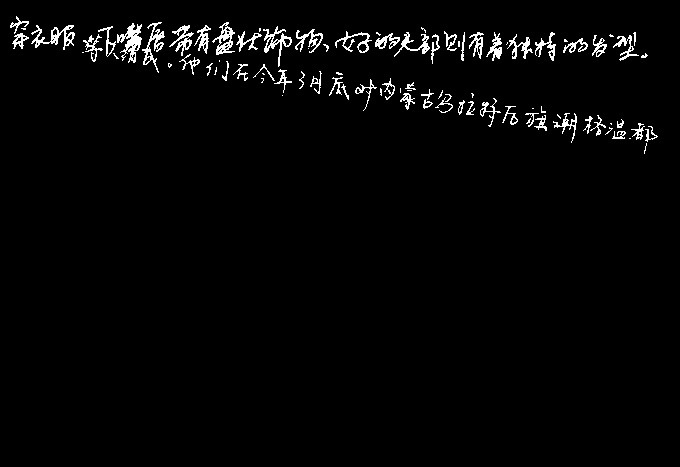 穿衣服 下嘴唇带有盘状饰物、女子的尾部则有着独特的发型。
等牧民。他们在今年3月底对内蒙古乌拉特后旗潮格温都